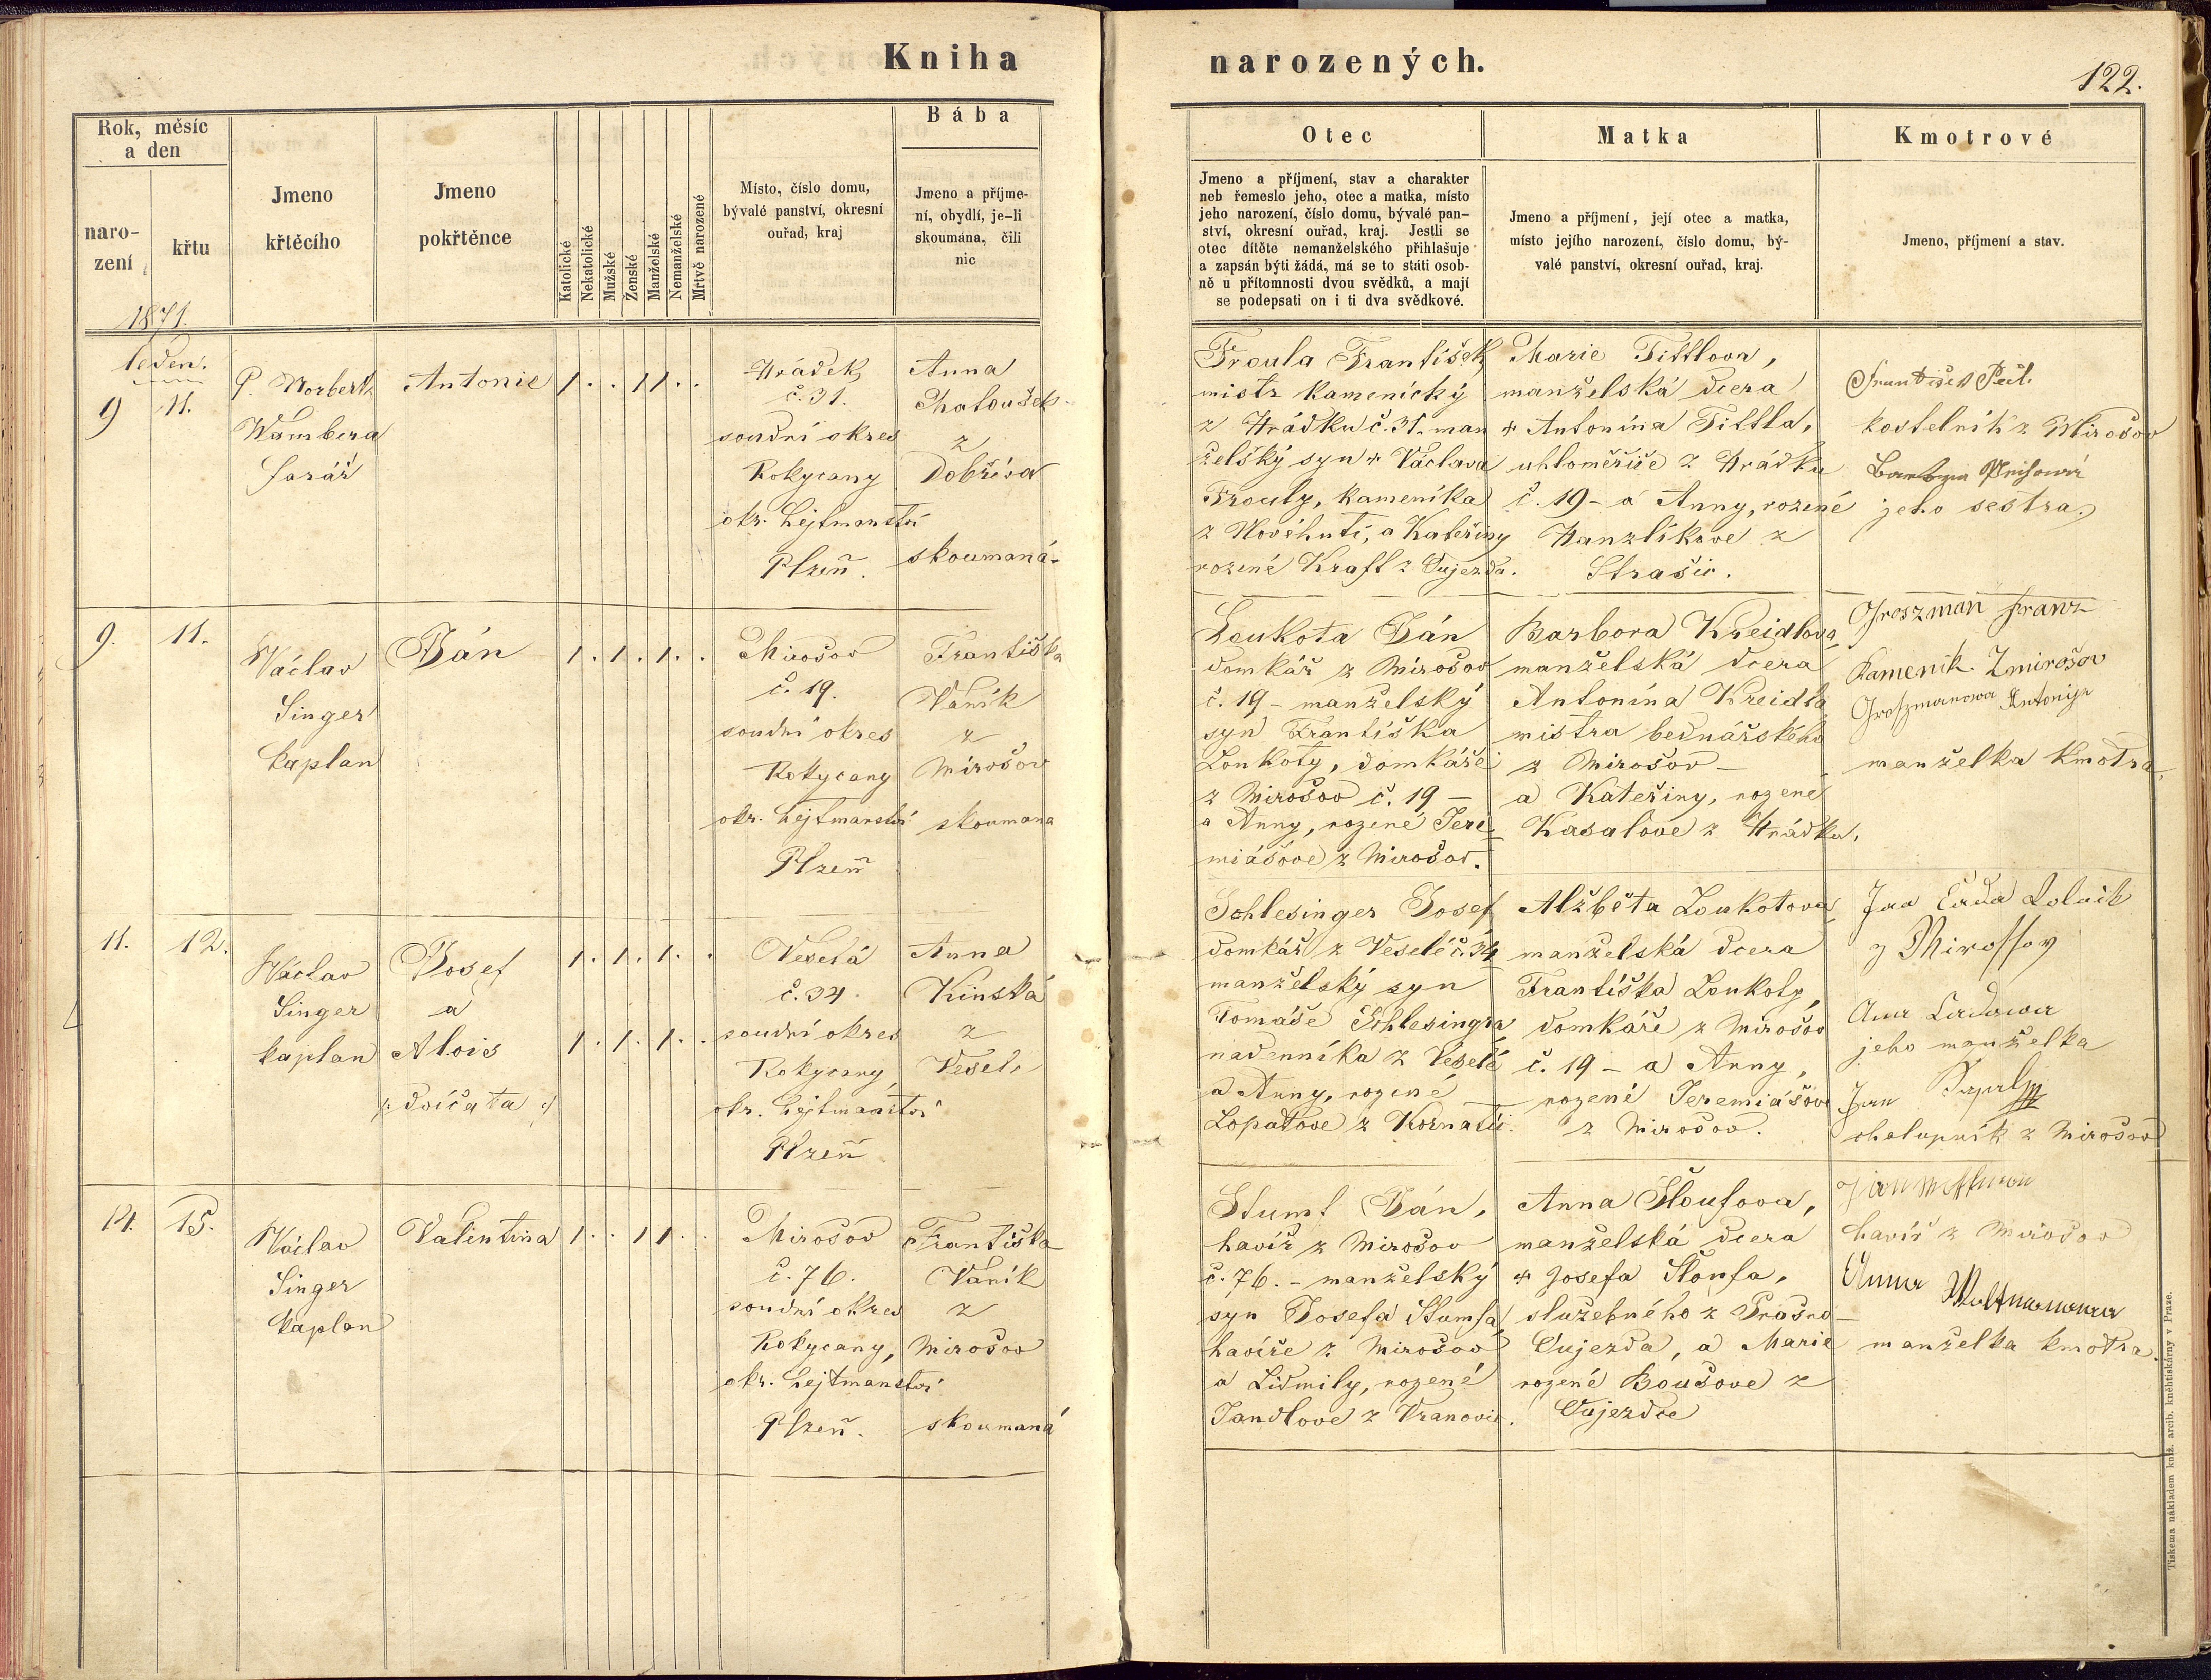 Kniha
narozených.
122.
Rok, měsíc
a den
naro-
zení
křtu
Jmeno
křtěcího
Jmeno
pokřtěnce
Katolické
Nekatolické
Mužské
Ženské
Manželské
Nemanželské
Mrtvě narozené
Místo, číslo domu,
bývalé panství, okresní
ouřad, kraj
Bába
Jmeno a příjme-
ní, obydlí, je-li
skoumána, čili
nic
Otec
Jmeno a příjmení, stav a charakter
neb řemeslo jeho, otec a matka, místo
jeho narození, číslo domu, bývalé pan-
ství, okresní ouřad, kraj. Jestli se
otec dítěte nemanželského přihlašuje
a zapsán býti žádá, má se to státi osob-
ně u přítomnosti dvou svědků, a mají
se podepsati on i ti dva svědkové.
Matka
Jmeno a příjmení, její otec a matka,
místo jejího narození, číslo domu, bý-
valé panství, okresní ouřad, kraj.
Kmotrové
Jmeno, příjmení a stav.
1871.
leden.
9
11.
P. Norbert
Wambera
farář
Antonie
1 . . 1 1 . .
Hrádek
č. 31.
soudní okres
Rokycany
okr. hejtmanství
Plzeň.
Anna
Chaloušek
z
Dobříva
skoumaná
Froula František
mistr kamenický
z Hrádku č. 31. man
želský syn + Václava
Frouly, kameníka
z Novéhuti, a Kateřiny
rozené Kraft z Oujezda.
Marie Tittlova,
manželská dcera
+ Antonína Tittla,
uhloměřiče z Hrádku
č. 19 - a Anny, rozené
Hanzlíkove z
Strašic.
František
kostelník z Mirošov
jeho sestra.
9.
11.
Václav
Singer
kaplan
Ján
1 . 1 . 1 . .
Mirošov
č. 19.
soudní okres
Rokycany
okr. hejtmanství
Plzeň
Františka
Vaník
z
Mirošov
skoumana
Loukota Ján
domkář z Mirošov
č. 19 - manželský
syn Františka
Loukoty, domkáře
z Mirošov č. 19 -
a Anny, rozené Jere
miášove z Mirošov.
Barbora Kreidlova,
manželská dcera
Antonína Kreidla
mistra bednářského
z Mirošov -
a Kateřiny, rozene
Kasalove z Hrádku.
Groszman Franz
Kamenik Zmirošov
Groszmanowa Antonije
manželka kmotra.
11.
12.
Václav
Singer
kaplan
Josef
a
Alois
/: dvíčata :/
1 . 1 . 1 . .
1 . 1 . 1 . .
Veselá
č. 34.
soudní okres
Rokycany
okr. hejtmanství
Plzeň
Anna
Kinská
z
Vesele
Schlesinger Josef
domkář z Veselé č. 34
manželský syn
Tomáše Schlesingra,
nadenníka z Veselé
a Anny, rozené
Lopatove z Kornatic.
Alžběta Loukotova,
manželská dcera
Františka Loukoty,
domkáře z Mirošov
č. 19 - a Anny,
rozené Jeremiášove
z Mirošov.
z Mirossov
jeho manželka
Jan
chalupník z Mirošov
14.
15.
Václav
Singer
kaplan
Valentina
1 . . 1 1 . .
Mirošov
č. 76.
soudní okres
Rokycany,
okr. hejtmanství
Plzeň.
Františka
Vaník
z
Mirošov
skoumaná
Stumf Ján,
havíř z Mirošov
č. 76. - manželský
syn Josefa Stumfa,
havíře z Mirošov
a Lidmily, rozené
Jandlove z Vranovic.
Anna Sloufova,
manželská dcera
+ Josefa Sloufa,
služebného z Prašno-
Oujezda, a Marie
rozené Boušove z
Oujezdce
havíř z Mirošov
Anna
manželka kmotra.
Tiskem a nákladem kníž. arcib. knihtiskárny v Praze.